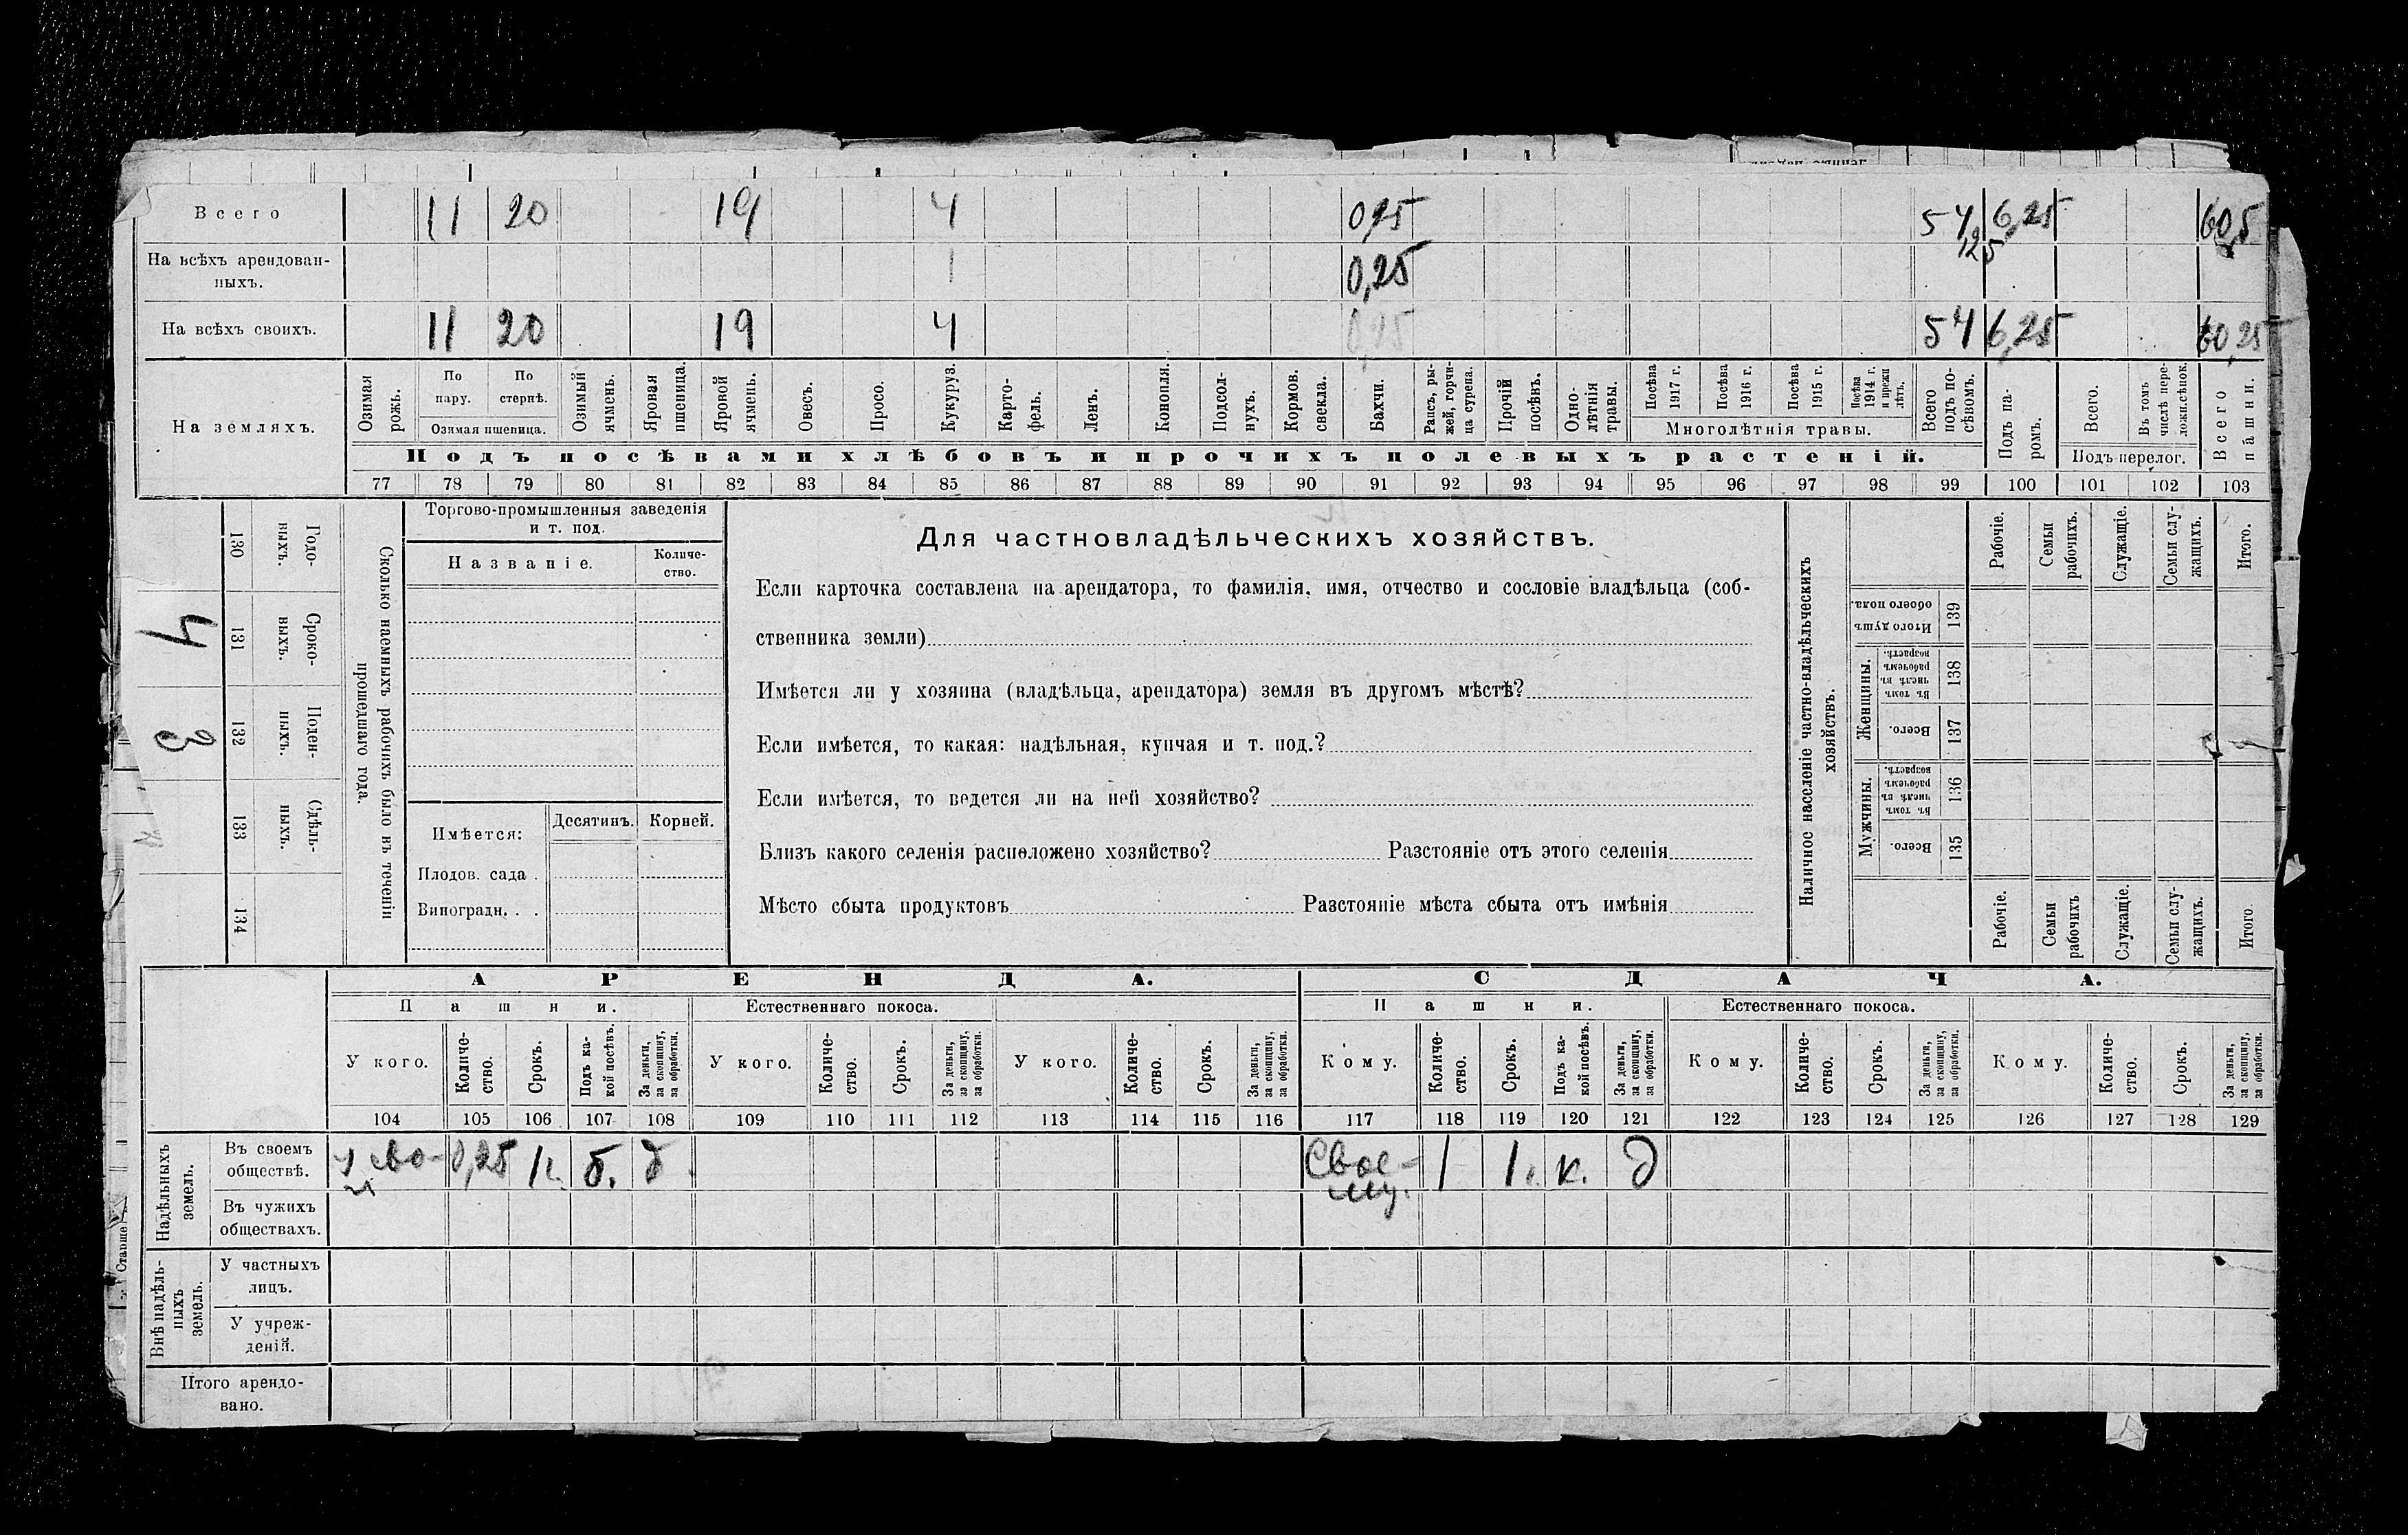 Всего 11 20 19 4 0,25 54,25 6,25 60,5
На всѣхъ арендован-
ныхъ. 0,25
На всѣхъ своихъ. 11 20 19 4 0,25 54 6,25 60,25
На земляхъ.
Озимая рожь.
По пару.
По стернѣ.
Озимая пшеница.
Озимый ячмень.
Яровая пшеница.
Яровой ячмень.
Овесъ.
Просо.
Кукуруз.
Карто-
фель.
Ленъ.
Конопля.
Подсол-
нухъ.
Кормов. свекла.
Бахчи.
Рапсъ, ры-
жей, горчи-
ца сурепа.
Прочій посѣвъ.
Одно-
лѣтнія травы.
Посѣва 1917 г.
Посѣва 1916 г.
Посѣва 1915 г.
Посѣва 1914 г. и прежн лѣтъ.
Многолѣтнія травы.
Всего подъ по-
сѣвомъ.
Подъ па-
ромъ.
Всего.
Въ томъ числѣ пере-
ложн.сѣнок.
Подъ перелог.
Всего пашни.
Подъ посѣвами хлѣбовъ и прочихъ полевыхъ растеній.
77 78 79 80 81 82 83 84 85 86 87 88 89 90 91 92 93 94 95 96 97 98 99 100 101 102 103
130 131 132 133 134
Годо-
выхъ.
Сроко-
ныхъ.
4
Поден-
ныхъ.
3
Сдѣль-
ныхъ.
Сколько наемныхъ рабочихъ было въ теченіи
прошедшаго года.
Торгово-промышленныя заведенія
и т. под.
Названіе.
Количе-
ство.
Имѣется: Десятинъ. Корней.
Плодов. сада .
Виноградн. . .
Для частновладѣльческихъ хозяйствъ.
Если карточка составлена на арендатора, то фамилія, имя, отчество и сословіе владѣльца (соб-
ственника земли)
Имѣется ли у хозяина (владѣльца, арендатора) земля въ другомъ мѣстѣ?
Если имѣется, то какая: надѣльная, купчая и т. под.?
Если имѣется, то ведется ли на ней хозяйство?
Близъ какого селенія расположено хозяйство? Разстояніе отъ этого селенія
Мѣсто сбыта продуктовъ Разстояніе мѣста сбыта отъ имѣнія
Наличное населеніе частно-владѣльческихъ
хозяйствъ.
Рабочіе.
Семьи рабочихъ.
Служащіе.
Семьи слу-
жащихъ.
Итого.
Итого душъ обоего пола. 139
Женщины.
Въ томъ числѣ въ рабочемъ возрастѣ. 138
Всего. 137
Мужчины.
Въ томъ числѣ въ рабочемъ возрастѣ. 136
Всего. 135
Рабочіе.
Семьи рабочихъ
Служащіе.
Семьи слу-
жащихъ.
Итого
АРЕНДА. СДАЧА.
Пашни. Естественнаго покоса. Пашни. Естественнаго покоса.
У кого.
Количе-
ство.
Срокъ.
Подъ ка-
кой посѣвъ.
За деньги, за скопщину, за обработки.
У кого.
Количе-
ство.
Срокъ.
За деньги, за скопщину, за обработки.
У кого.
Количе-
ство.
Срокъ.
За деньги, за скопщину, за обработки.
Кому.
Количе-
ство.
Срокъ.
Подъ ка-
кой посѣвъ.
За деньги, за скопщину, за обработки.
Кому.
Количе-
ство.
Срокъ.
За деньги, за скопщину, за обработки.
Кому.
Количе-
ство.
Срокъ.
За деньги, за скопщину, за обработки.
104 105 106 107 108 109 110 111 112 113 114 115 116 117 118 119 120 121 122 123 124 125 126 127 128 129
Надѣльныхъ земель.
Въ своемъ
обществѣ. 0,25 1г. б. д. Свое-
му. 1 1г. к. д
Въ чужихъ
обществахъ.
Внѣ надѣль-
ныхъ земель.
У частныхъ
лицъ.
У учреж-
деній.
Итого арендо-
вано.
Старше